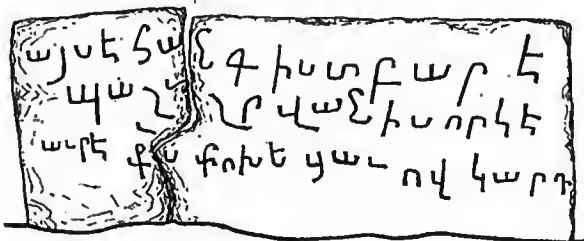 այսէ հանգիստ բարէ
պան վանիս որ կէ
աւրէ քս փոխեցաւ ով կարդ